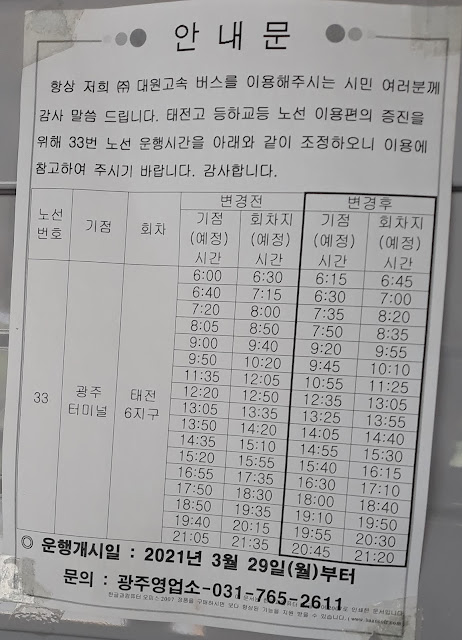 안 내 문
항상 저희 ㈜ 대원고속 버스를 이용해주시는 시민 여러분께
감사 말씀 드립니다. 태전고 등하교등 노선 이용편의 증진을
위해 33번 노선 운행시간을 아래와 같이 조정하오니 이용에
참고하여 주시기 바랍니다. 감사합니다.
노선 번호 기점 회차 변경전 변경후
기점 (예정) 시간 회차지 (예정) 시간 기점 (예정) 시간 회차지 (예정) 시간
33 광주 터미널 태전 6지구
6:00 6:30 6:15 6:45
6:40 7:15 6:30 7:00
7:20 8:00 7:35 8:20
8:05 8:50 7:50 8:35
9:00 9:40 9:20 9:55
9:50 10:20 9:45 10:10
11:35 12:05 10:55 11:25
12:20 12:50 12:35 13:05
13:05 13:35 13:25 13:55
13:50 14:20 14:05 14:40
14:35 15:10 14:55 15:30
15:20 15:55 15:40 16:15
16:55 17:35 16:30 17:10
17:50 18:30 18:00 18:40
18:50 19:35 19:10 19:50
19:40 20:15 19:55 20:30
21:05 21:35 20:45 21:20
◎ 운행개시일 : 2021년 3월 29일(월)부터
문의 : 광주영업소-031-765-2611